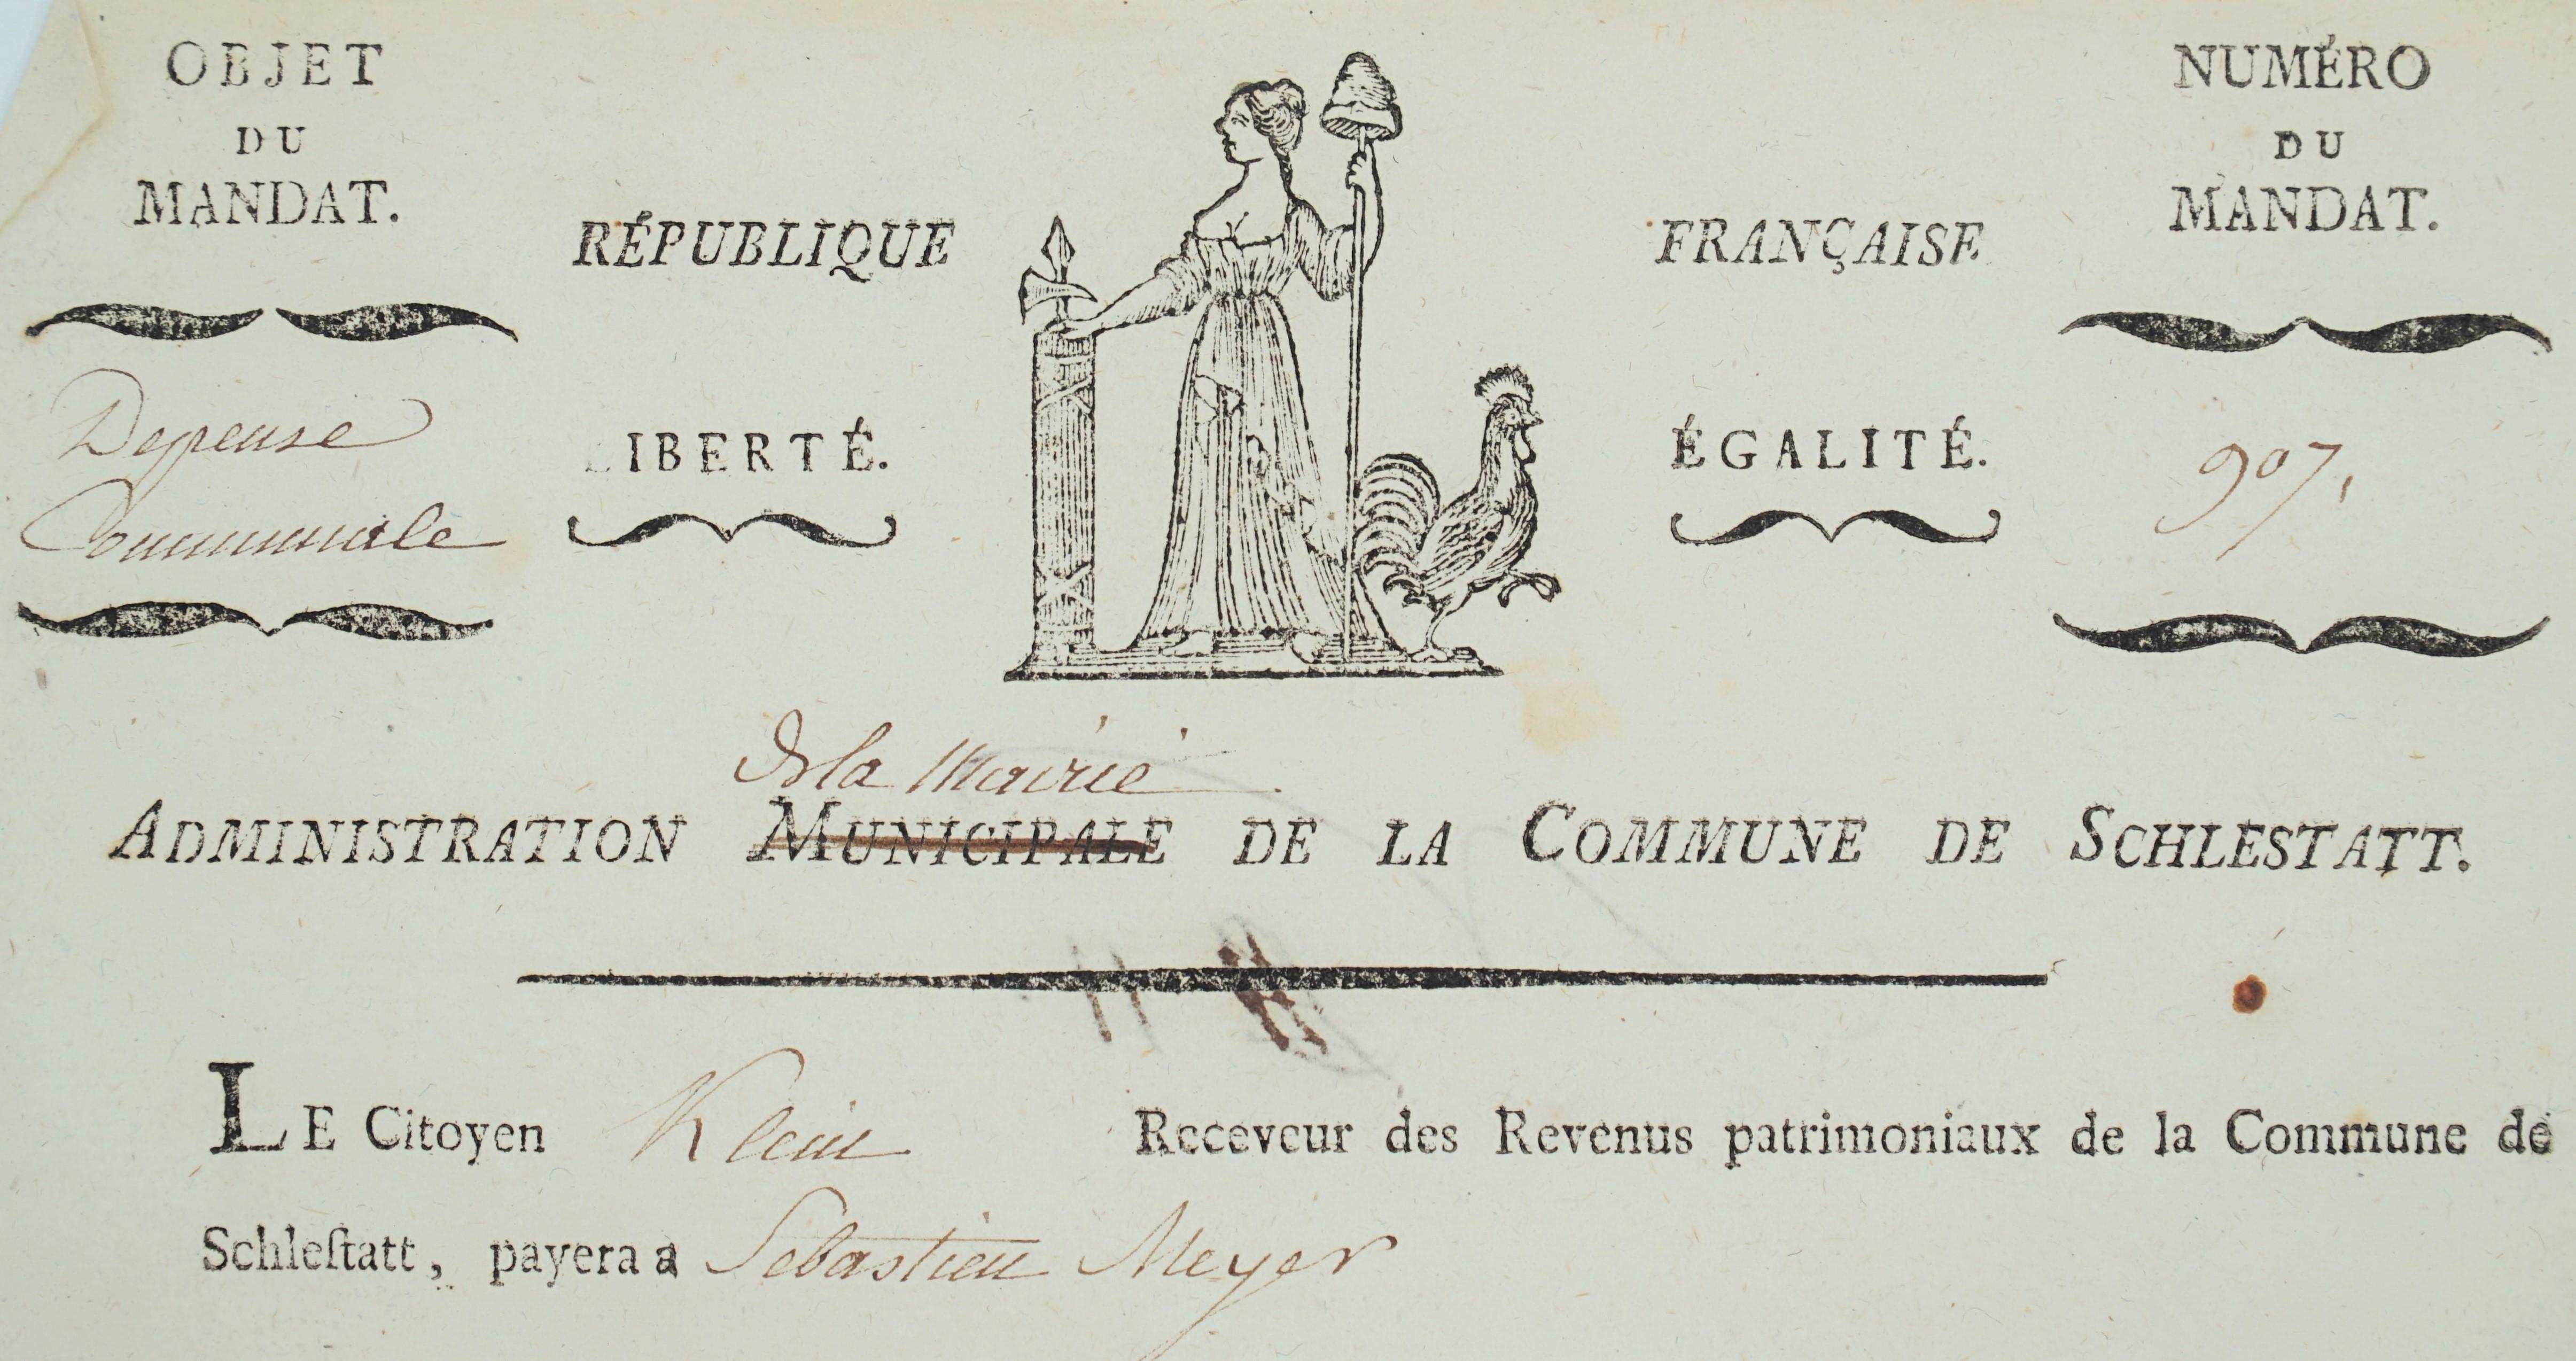 OBJET
DU
MANDAT.
Depense
Communale
RÉPUBLIQUE FRANÇAISE
LIBERTÉ. ÉGALITÉ.
NUMÉRO
DU
MANDAT.
907,
de la Mairie
ADMINISTRATION MUNICIPALE DE LA COMMUNE DE SCHLESTATT.
LE Citoyen Klein Receveur des Revenus patrimoniaux de la Commune de
Schleſtatt, payera a Sebastien Meyer